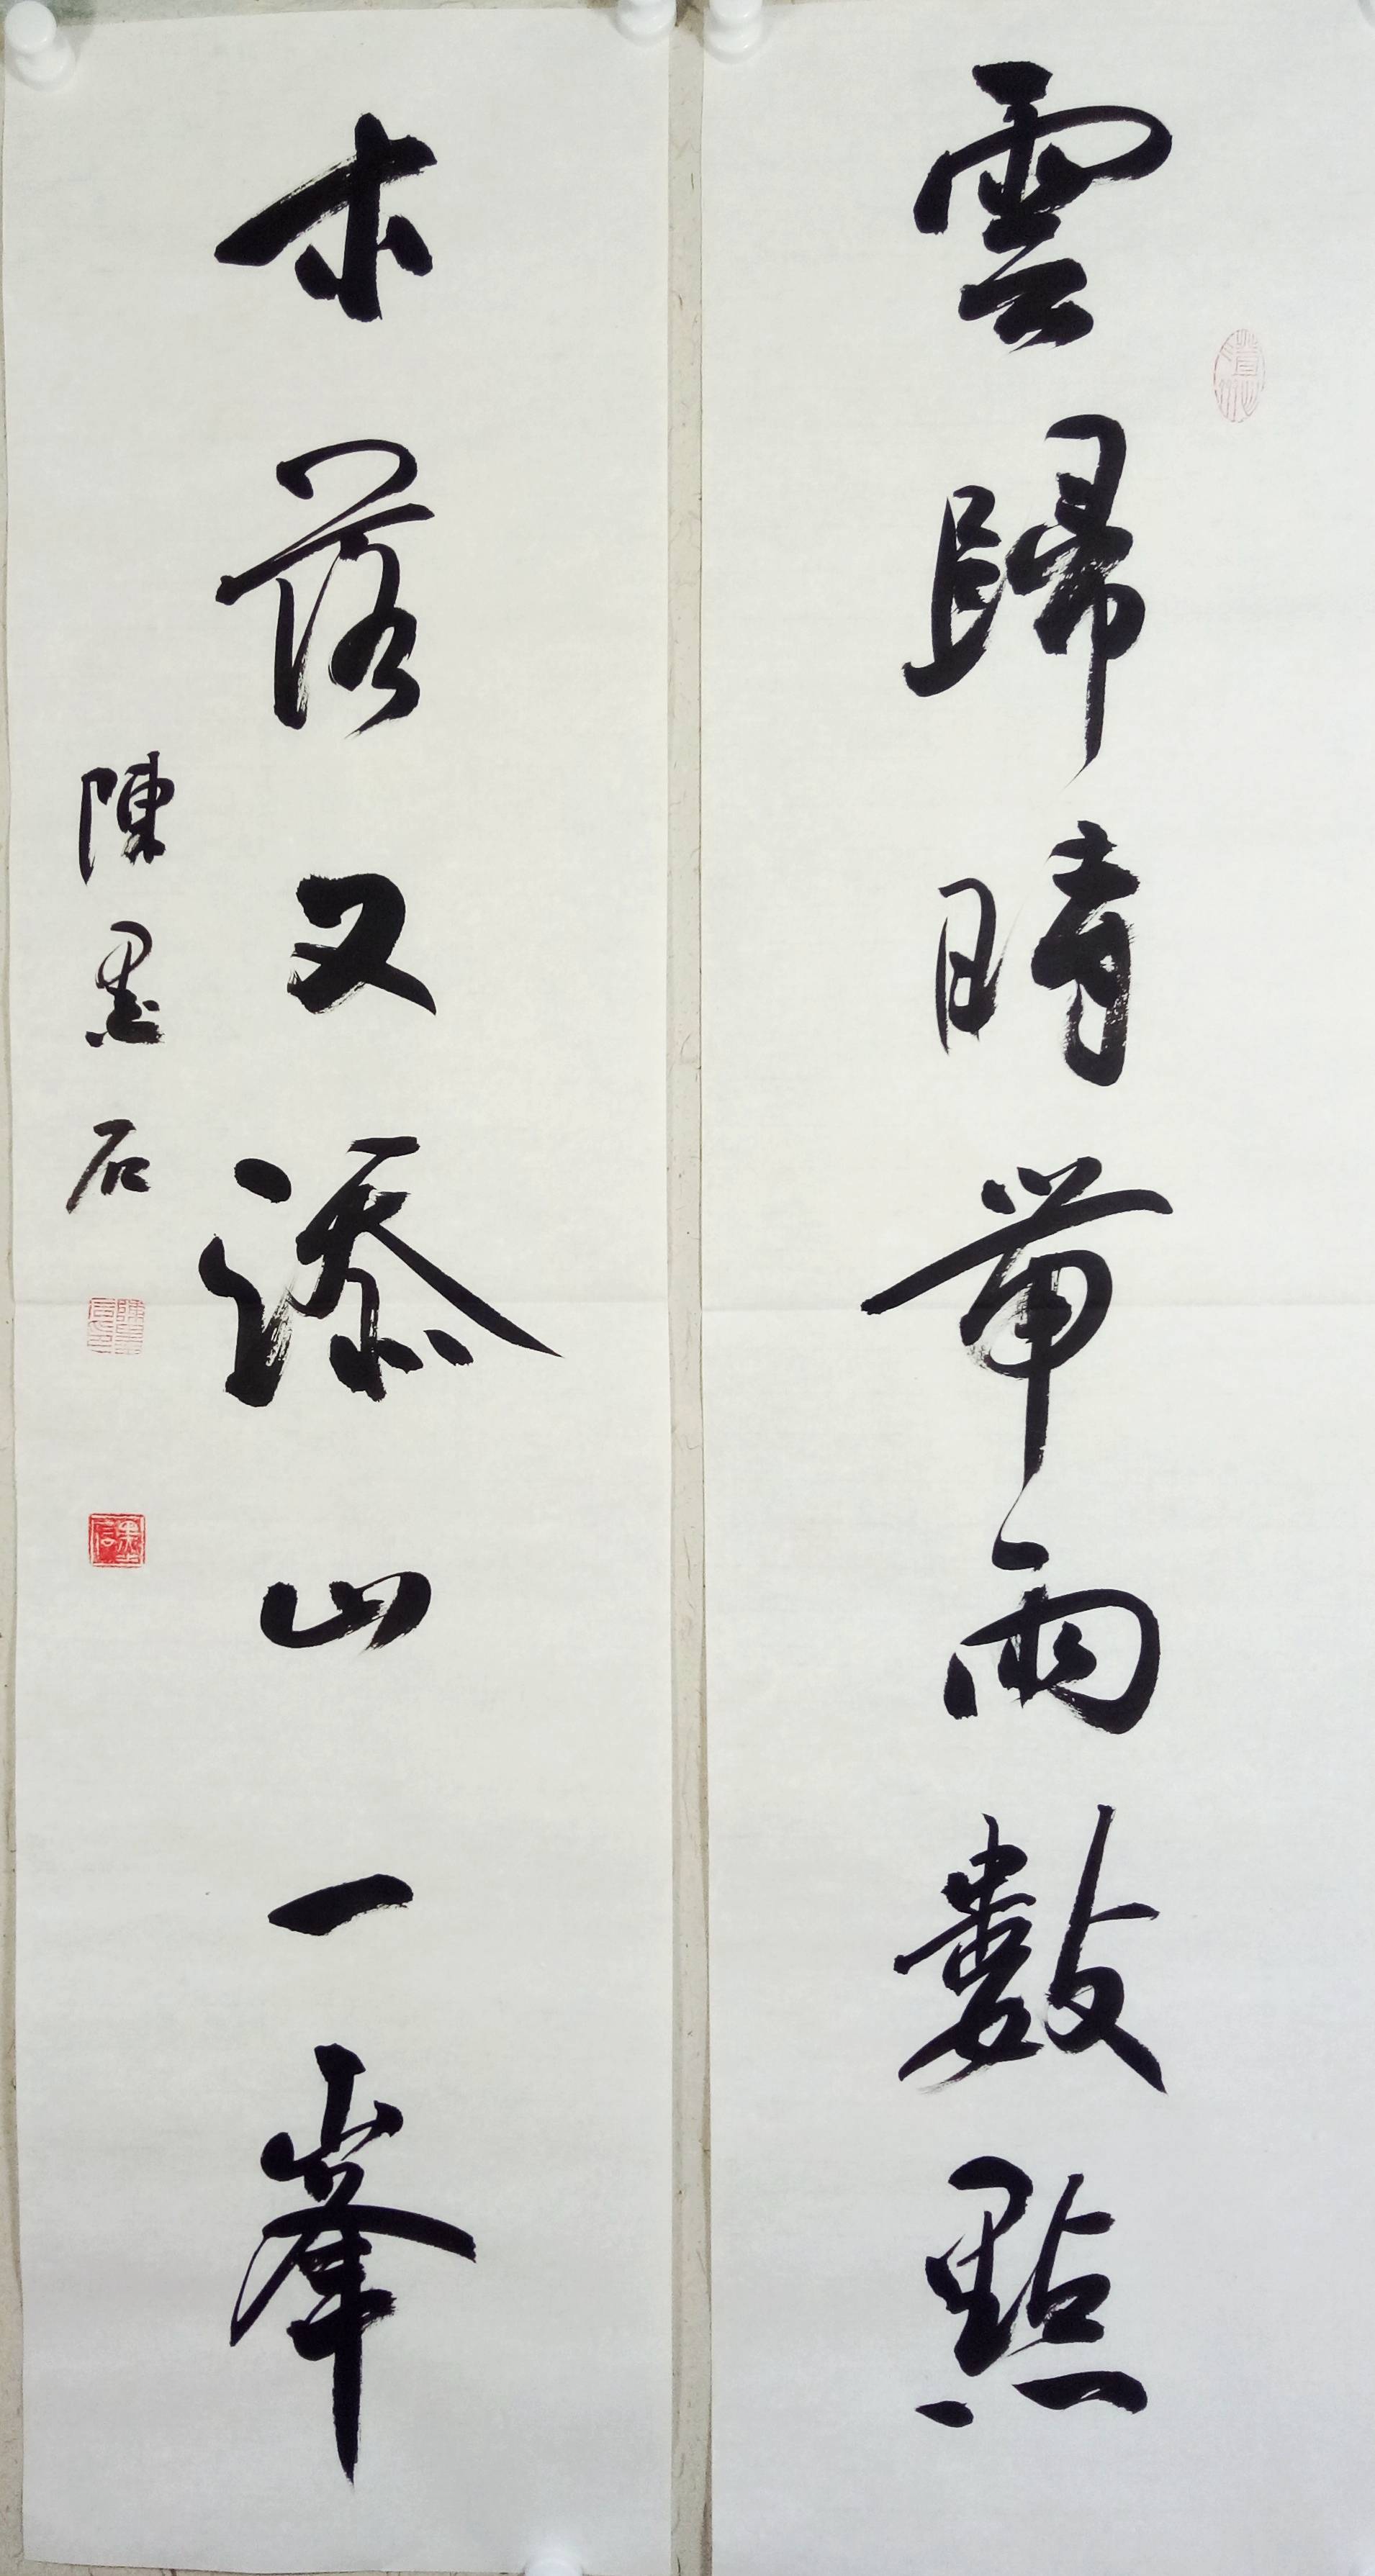 雲歸時帶雨數點
木落又添山一峯
陳墨石